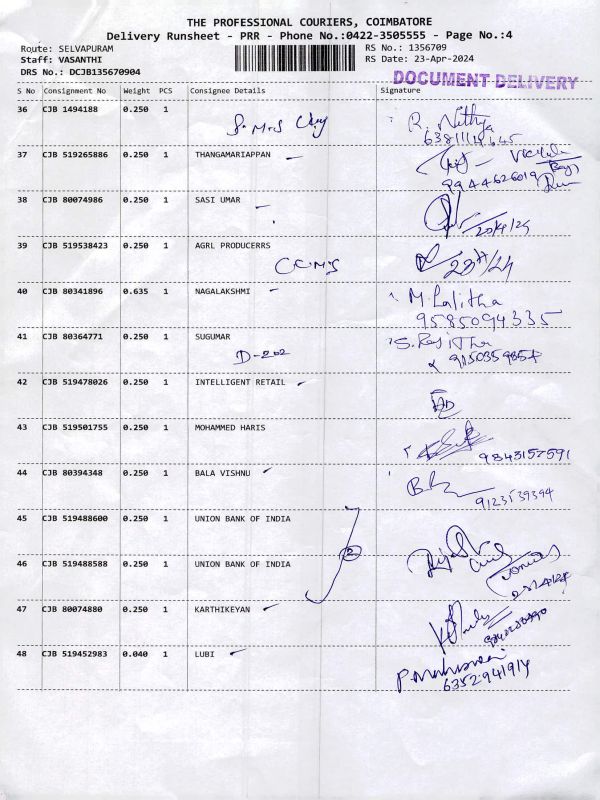 THE PROFESSIONAL COURIERS, COIMBATORE
Delivery Runsheet - PRR - Phone No.:0422-3505555 - Page No.:4
Route: SELVAPURAM RS No.: 1356709
Staff: VASANTHI RS Date: 23-Apr-2024
DRS No.: DCJB135670904 DOCUMENT DELIVERY
S No Consignment No Weight PCS Consignee Details Signature
36 CJB 1494188 0.250 1 R. Nithya
37 CJB 519265886 0.250 1 THANGAMARIAPPAN
9944626019
38 CJB 80074986 0.250 1 SASI UMAR
39 CJB 519538423 0.250 1 AGRL PRODUCERRS
40 CJB 80341896 0.635 1 NAGALAKSHMI M. Lalitha
9585094335
41 CJB 80364771 0.250 1 SUGUMAR
D-202
42 CJB 519478026 0.250 1 INTELLIGENT RETAIL
43 CJB 519501755 0.250 1 MOHAMMED HARIS
9843157591
44 CJB 80394348 0.250 1 BALA VISHNU
9123539394
45 CJB 519488600 0.250 1 UNION BANK OF INDIA
2
46 CJB 519488588 0.250 1 UNION BANK OF INDIA
47 CJB 80074880 0.250 1 KARTHIKEYAN
48 CJB 519452983 0.040 1 LUBI
6352941914